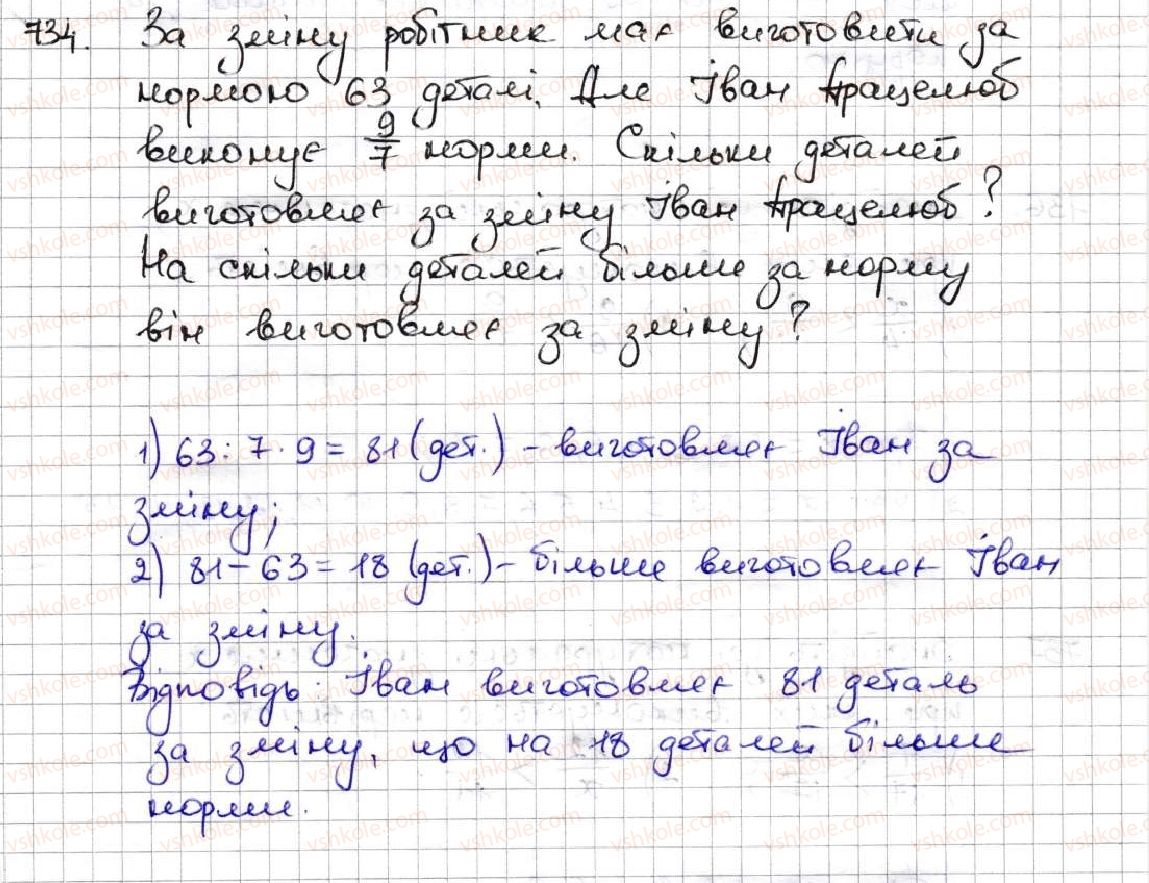 734. За зміну робітник має виготовити за
нормою 63 деталі. Але Іван Працелюб
виконує 9/7 норми. Скільки деталей
виготовляє за зміну Іван Працелюб?
На скільки деталей більше за норму
він виготовляє за зміну?
1) 63 : 7 · 9 = 81 (дет.) - виготовляє Іван за
зміну;
2) 81 - 63 = 18 (дет.) - більше виготовляє Іван
за зміну.
Відповідь: Іван виготовляє 81 деталь
за зміну, що на 18 деталей більше
норми.